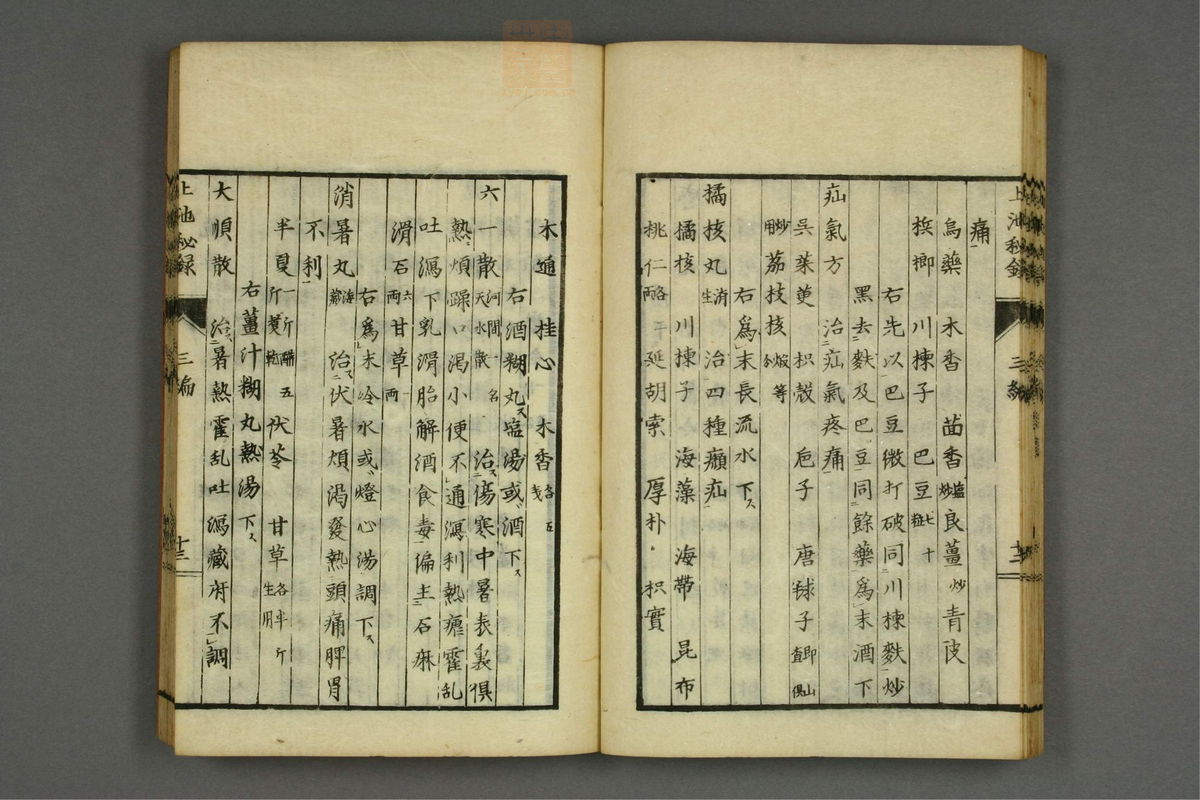 上池秘録　三編　十二
痛
烏藥　木香　茴香鹽炒　良薑炒　青皮
梹榔　川楝子　巴豆七十粒
右先以巴豆微打破同川楝麩炒
黑去麩及巴豆同餘藥爲末酒下
疝氣方　治疝氣疼痛
呉茱萸　枳殼　巵子　唐毬子即山査俱
用炒　茘枝核煅等分
右爲末長流水下ス
橘核丸消生　治四種癩疝
橘核　川楝子　海藻　海帶　昆布
桃仁各一兩　延胡索　厚朴　枳實
木通　桂心　木香各五戔
右酒糊丸ス塩湯或ハ酒下ス
六一散河間一名天水散　治ス傷寒中暑表裏俱
熱煩躁口渇小便不通瀉利熱瘧霍乱
吐瀉下乳滑胎解酒食毒偏主石痳
滑石六兩　甘草一兩
右爲末冷水或ハ燈心湯調下ス
消暑丸海藏　治ス伏暑煩渇發熱頭痛脾胃
不利
半夏一斤醋五斤煑乾　茯苓　甘草各半斤生用
右薑汁糊丸熱湯下ス
大順散　治ス暑熱霍乱吐瀉藏府不調
上池秘録　三編　十三